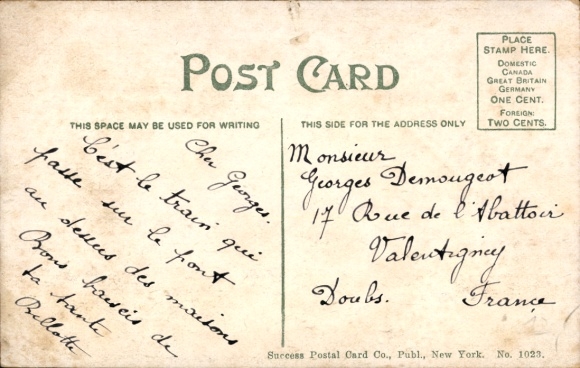 POST CARD
PLACE
STAMP HERE.
DOMESTIC
CANADA
GREAT BRITAIN
GERMANY
ONE CENT.
FOREIGN:
TWO CENTS.
THIS SPACE MAY BE USED FOR WRITING
Cher Georges.
C'est le train qui
passe sur le pont
au dessus des maisons
Bons baisers de
ta tante
THIS SIDE FOR THE ADDRESS ONLY
Monsieur
Georges Demougeot
17 Rue de l'Abattoir
Valentigney
Doubs. France
Success Postal Card Co., Publ., New York. No. 1023.